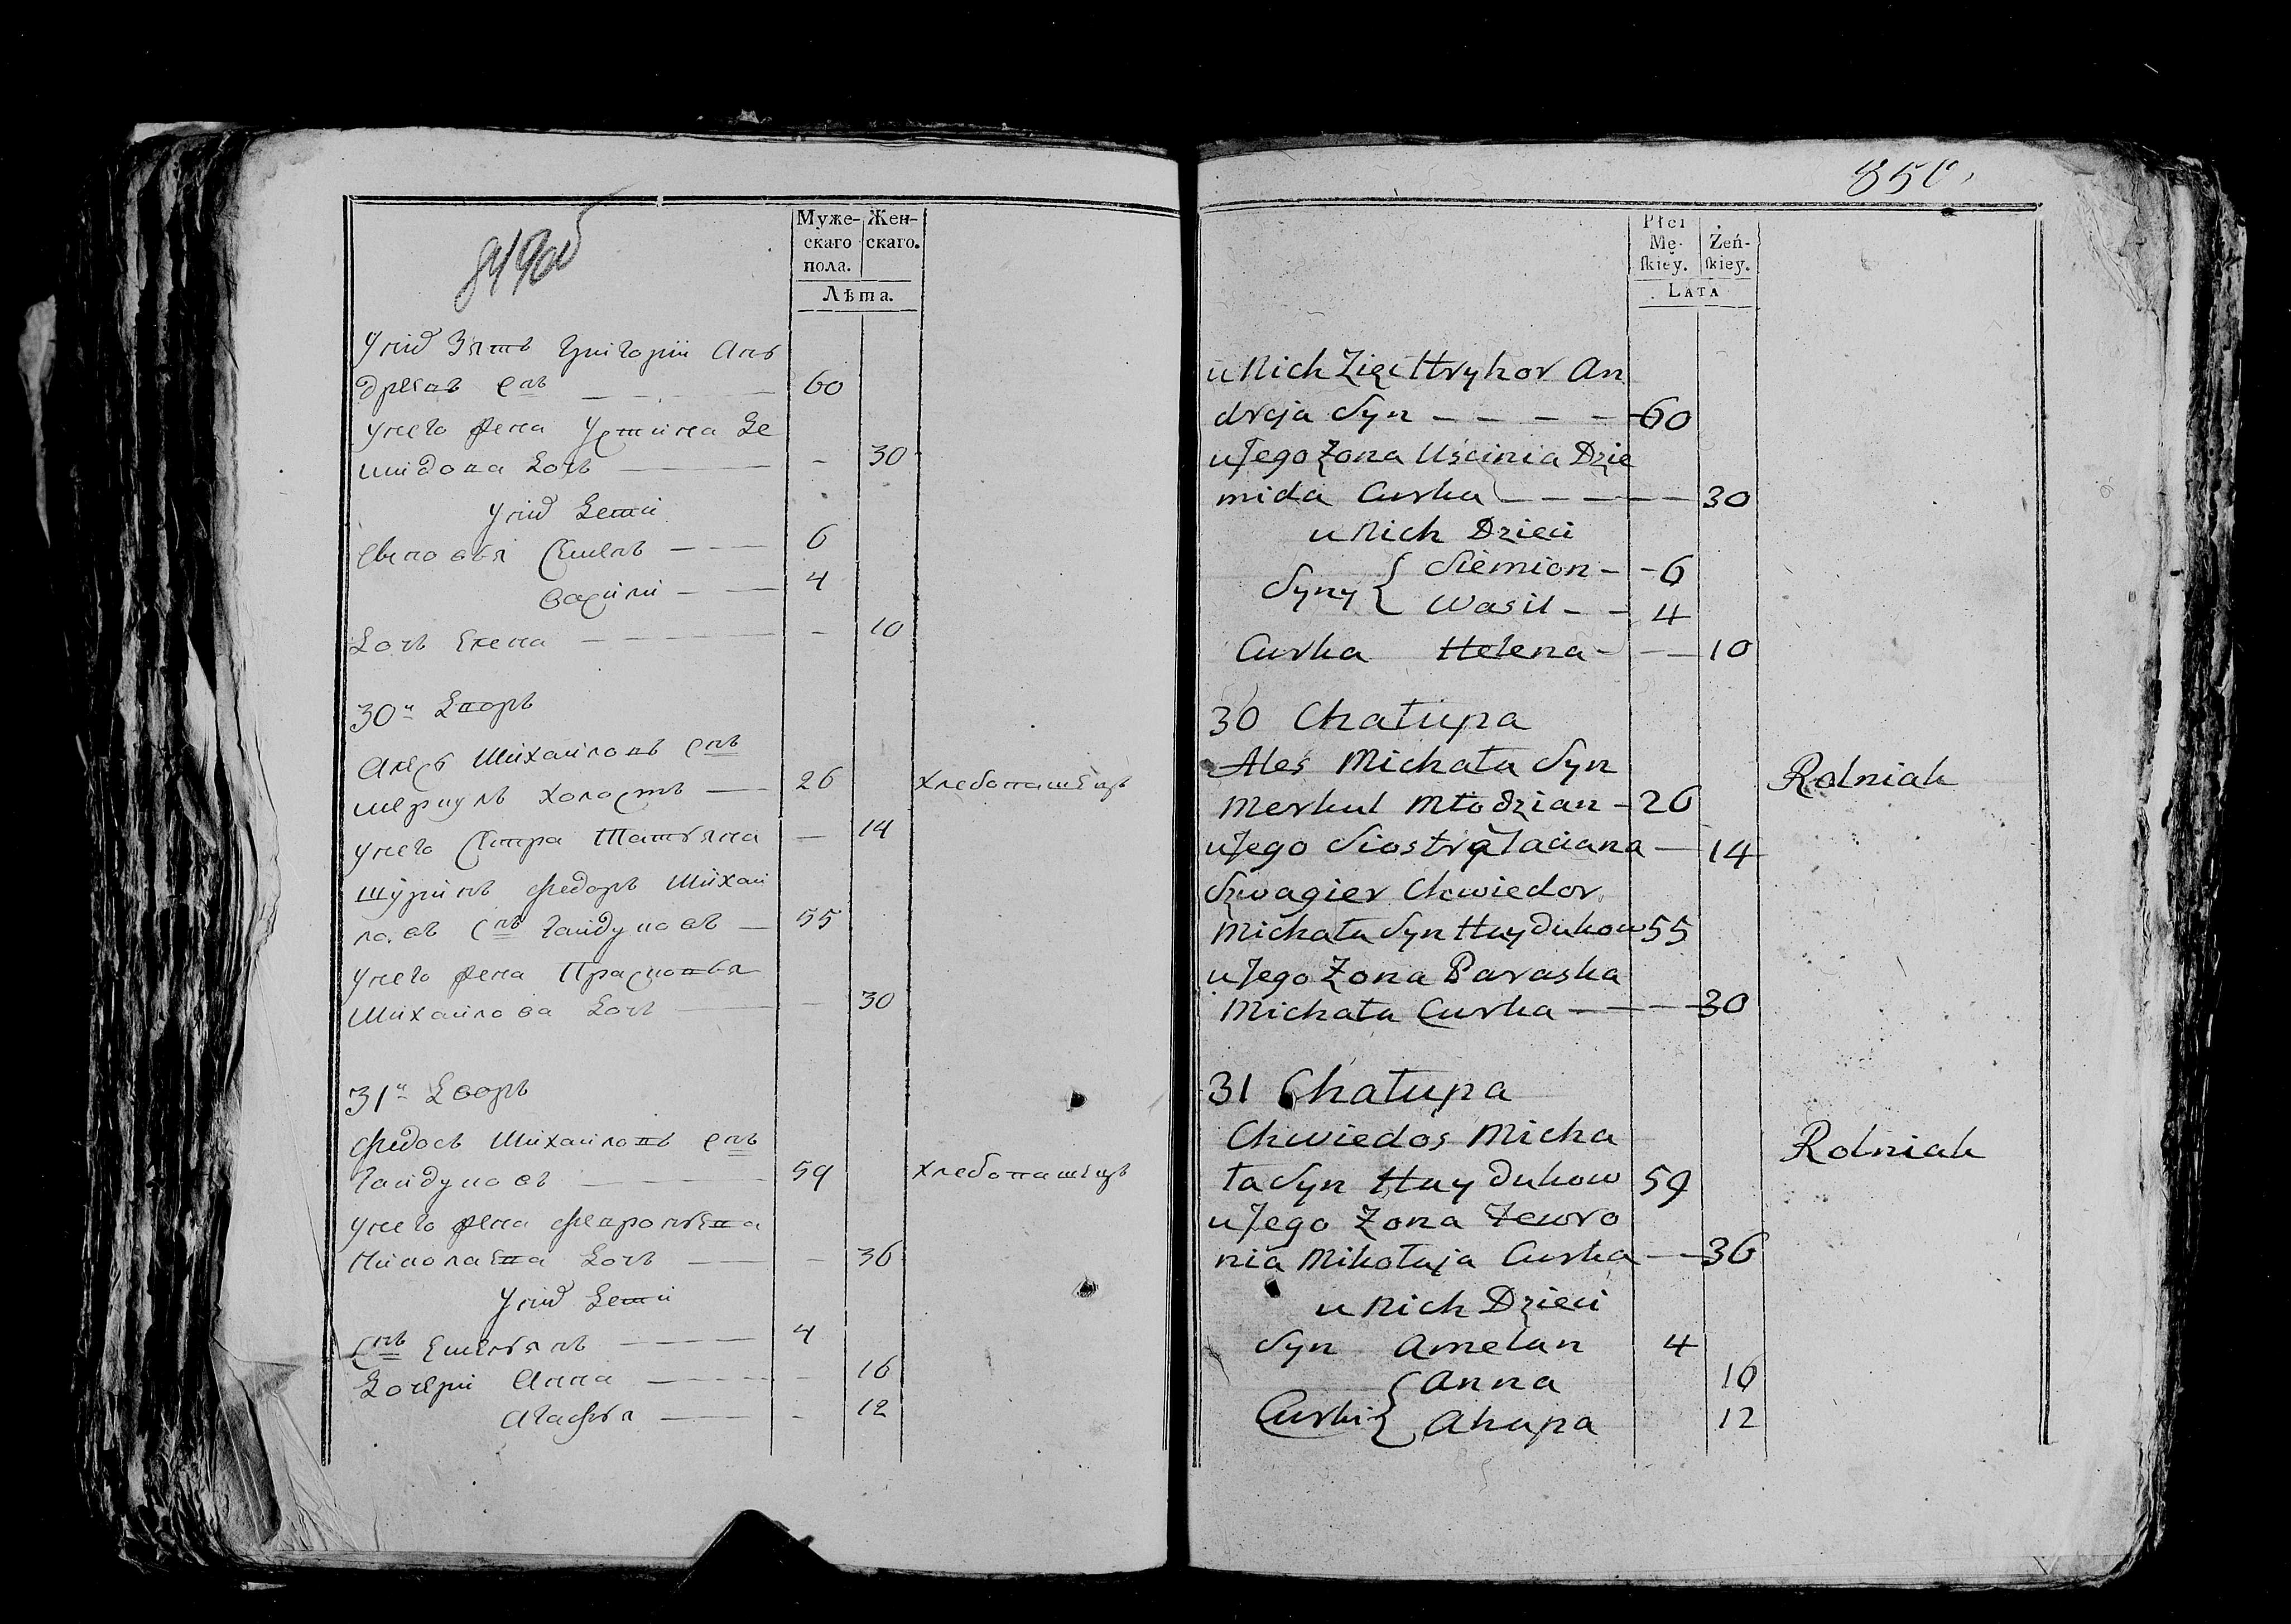 849об
Муже- Жен-
скаго скаго.
пола.
Лѣта.
Унид Зять Григорій Ан
дреевъ снъ 60
унего жена Устинна Де
мидова дочь - 30
унид дети
сыновья Семенъ 6
Васили 4
дочь Елена - 10
30й дворъ
Алесь Михайловъ снъ
меркулъ холостъ 26 хлебопашецъ
унего Сестра Татьяна - 14
шуринъ федоръ Михай
ловъ снъ Гайдуковъ 55
унего жена Прасковья
Михайлова дочь - 30
31й дворъ
федосъ Михайловъ снъ
Гайдуковъ 59 хлебопашецъ
унего жена февроньева
Николаева дочь - 36
унид дети
снъ Емельянъ 4
дочери Анна - 16
Агафья - 12
850
Płci
Mę- Żeń-
ſkiey. ſkiey.
LATA
u Nich Zięć Hryhor An
dreja Syn 60
u Jego Żona Uścinia Dzie
mida Curka 30
u Nich Dzieci
Syny { Siemion 6
Wasil 4
Curka Helena 10
30 Chałupa
Ales Michała Syn
Merkul Młodzian 26 Rolniak
u Jego Siostra Taciana 14
Szwagier Chwiedor
Michała Syn Huydukow 55
u Jego Żona Paraska
Michała Curka 30
31 Chałupa
Chwiedos Micha
ła Syn Huydukow 59 Rolniak
u Jego Żona Fewro
nia Mikołaja Curka 36
u Nich Dzieci
Syn Amelan 4
Curki { Anna 16
Ahapa 12